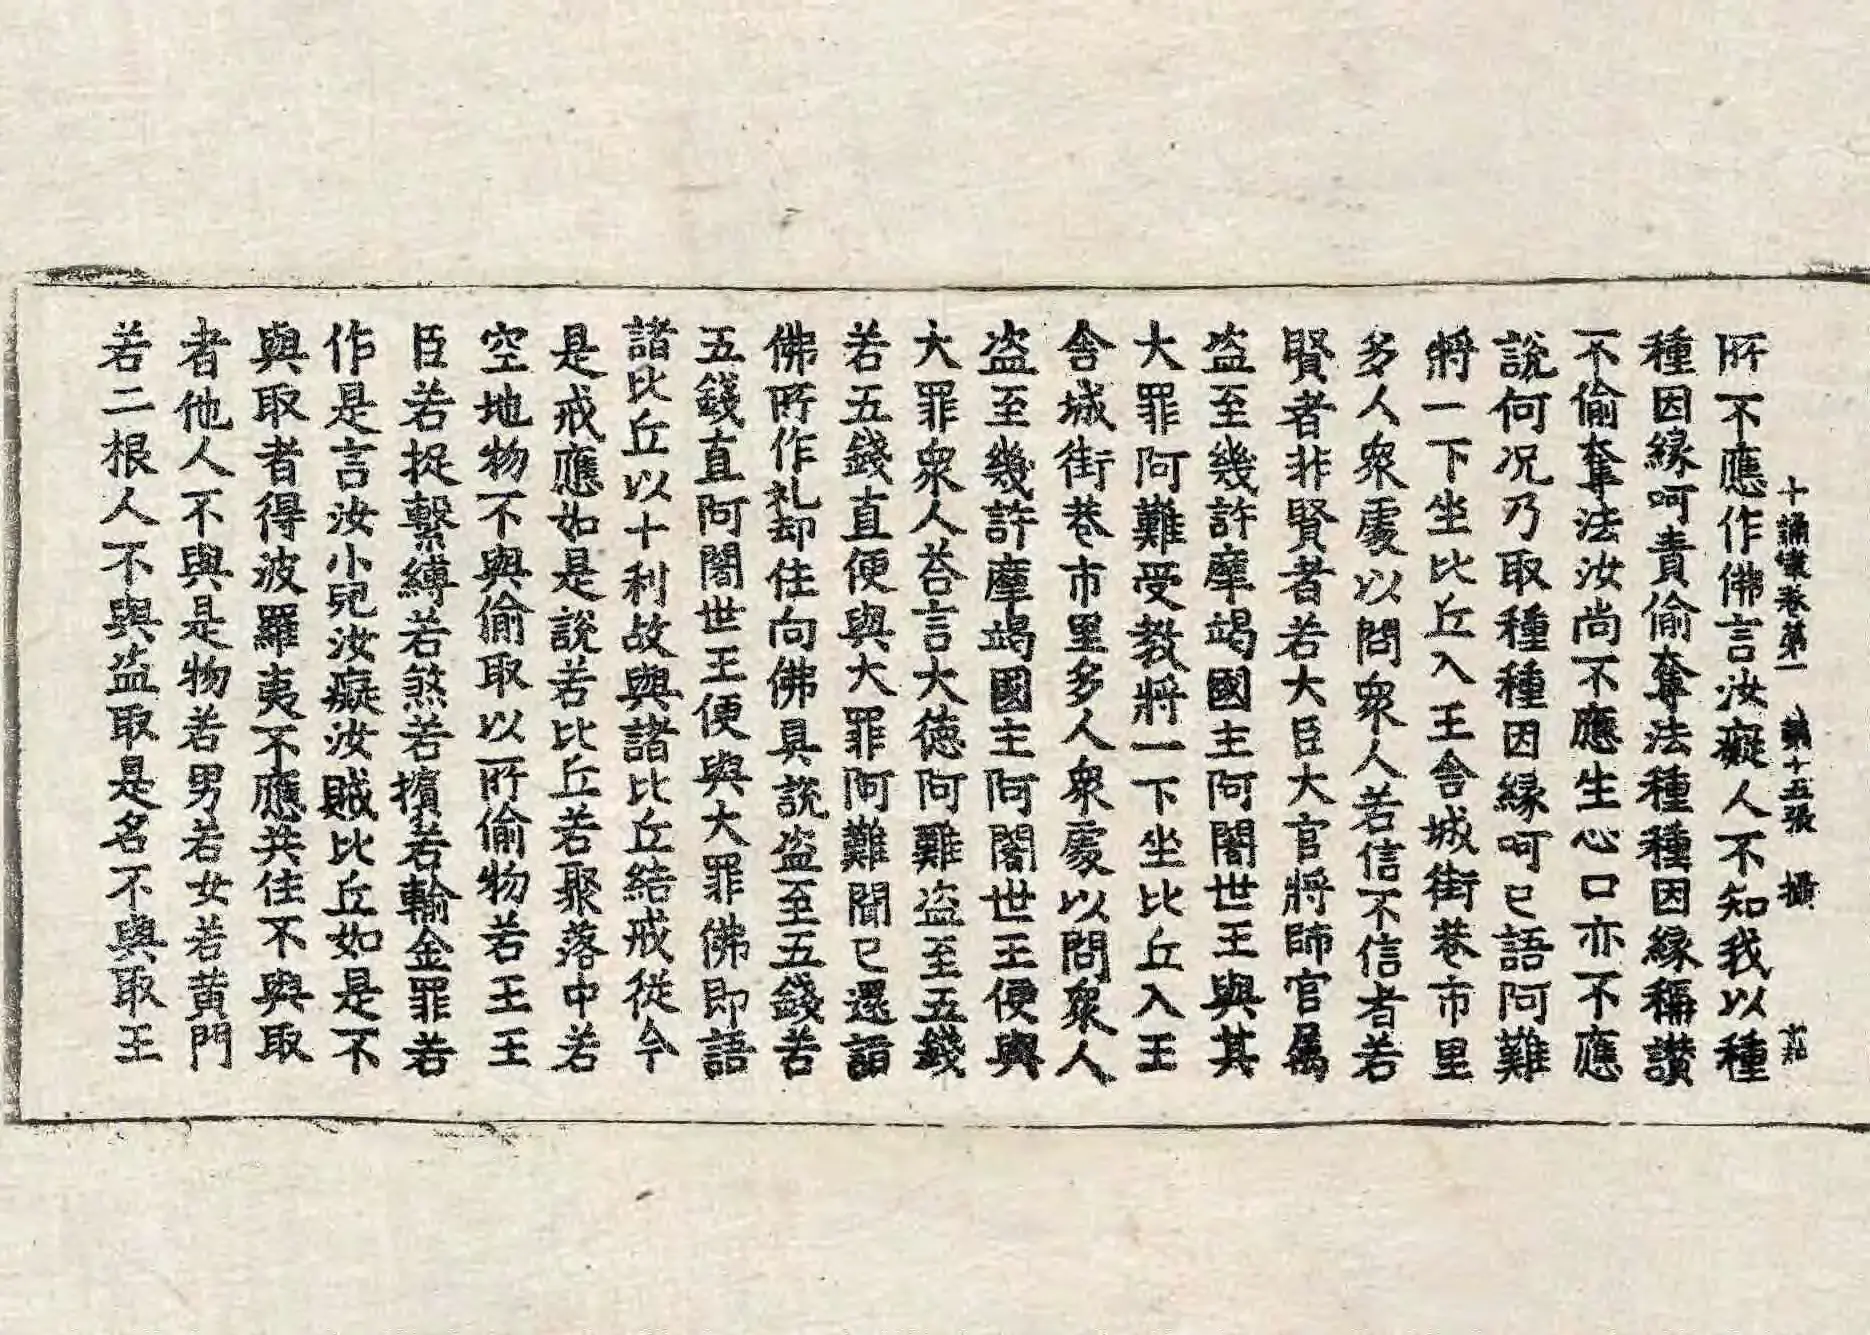 十誦律卷第一　第十五張　攝
所不應作佛言汝癡人不知我以種
種因緣呵責偷奪法種種因緣稱讚
不偷奪法汝尚不應生心口亦不應
說何况乃取種種因緣呵已語阿難
將一下坐比丘入王舍城街巷市里
多人衆處以問衆人若信不信者若
賢者非賢者若大臣大官將師官属
盗至幾許摩竭國主阿闍世王與其
大罪阿難受教將一下坐比丘入王
舍城街巷市里多人衆處以問衆人
盗至幾許摩竭國主阿闍世王便與
大罪衆人荅言大徳阿難盗至五錢
若五錢直便與大罪阿難聞已還詣
佛所作礼却住向佛具說盗至五錢若
五錢直阿闍世王便與大罪佛即語
諸比丘以十利故與諸比丘結戒從今
是戒應如是說若比丘若聚落中若
空地物不與偷取以所偷物若王王
臣若捉繫縛若煞若擯若輸金罪若
作是言汝小兒汝癡汝賊比丘如是不
與取者得波羅夷不應共住不與取
者他人不與是物若男若女若黄門
若二根人不與盗取是名不與取王